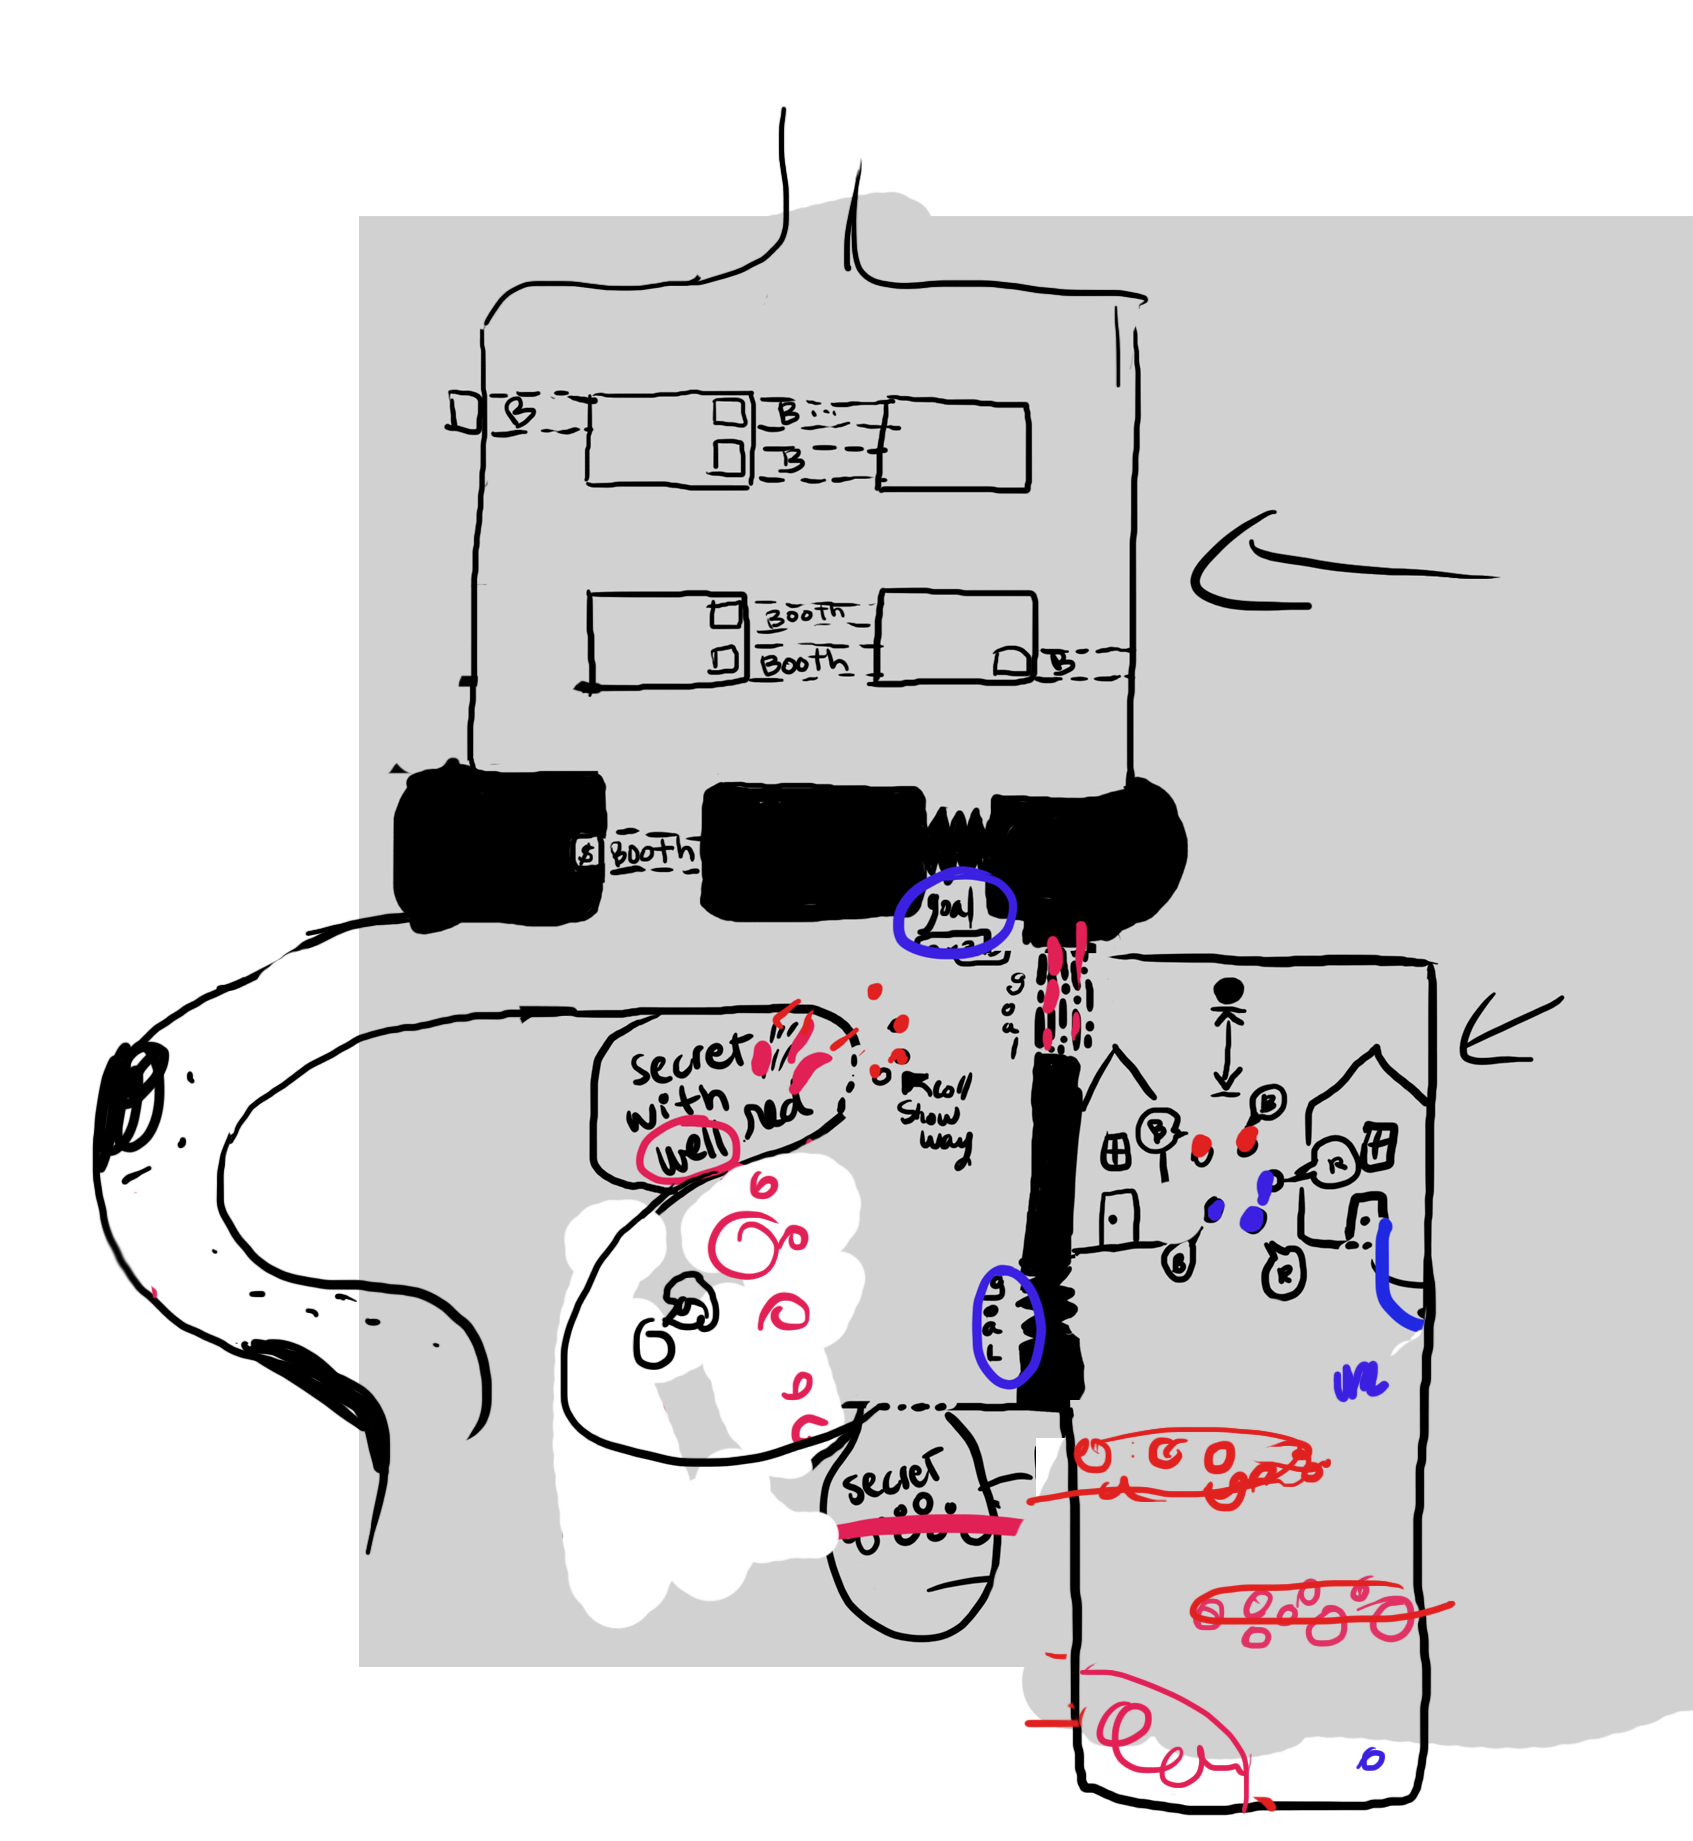 B
B
B
Booth
Booth
B
$ Booth
goal
goal
secret
with red
well
coll
show
way
B
B
R
B
R
goaL
secret